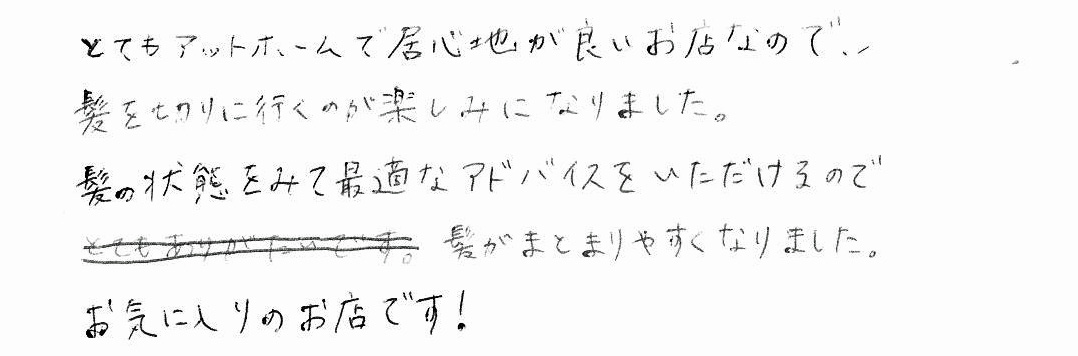 とてもアットホームで居心地が良いお店なので、
髪を切りに行くのが楽しみになりました。
髪の状態をみて最適なアドバイスをいただけるので
とてもありがたいです。髪がまとまりやすくなりました。
お気に入りのお店です!